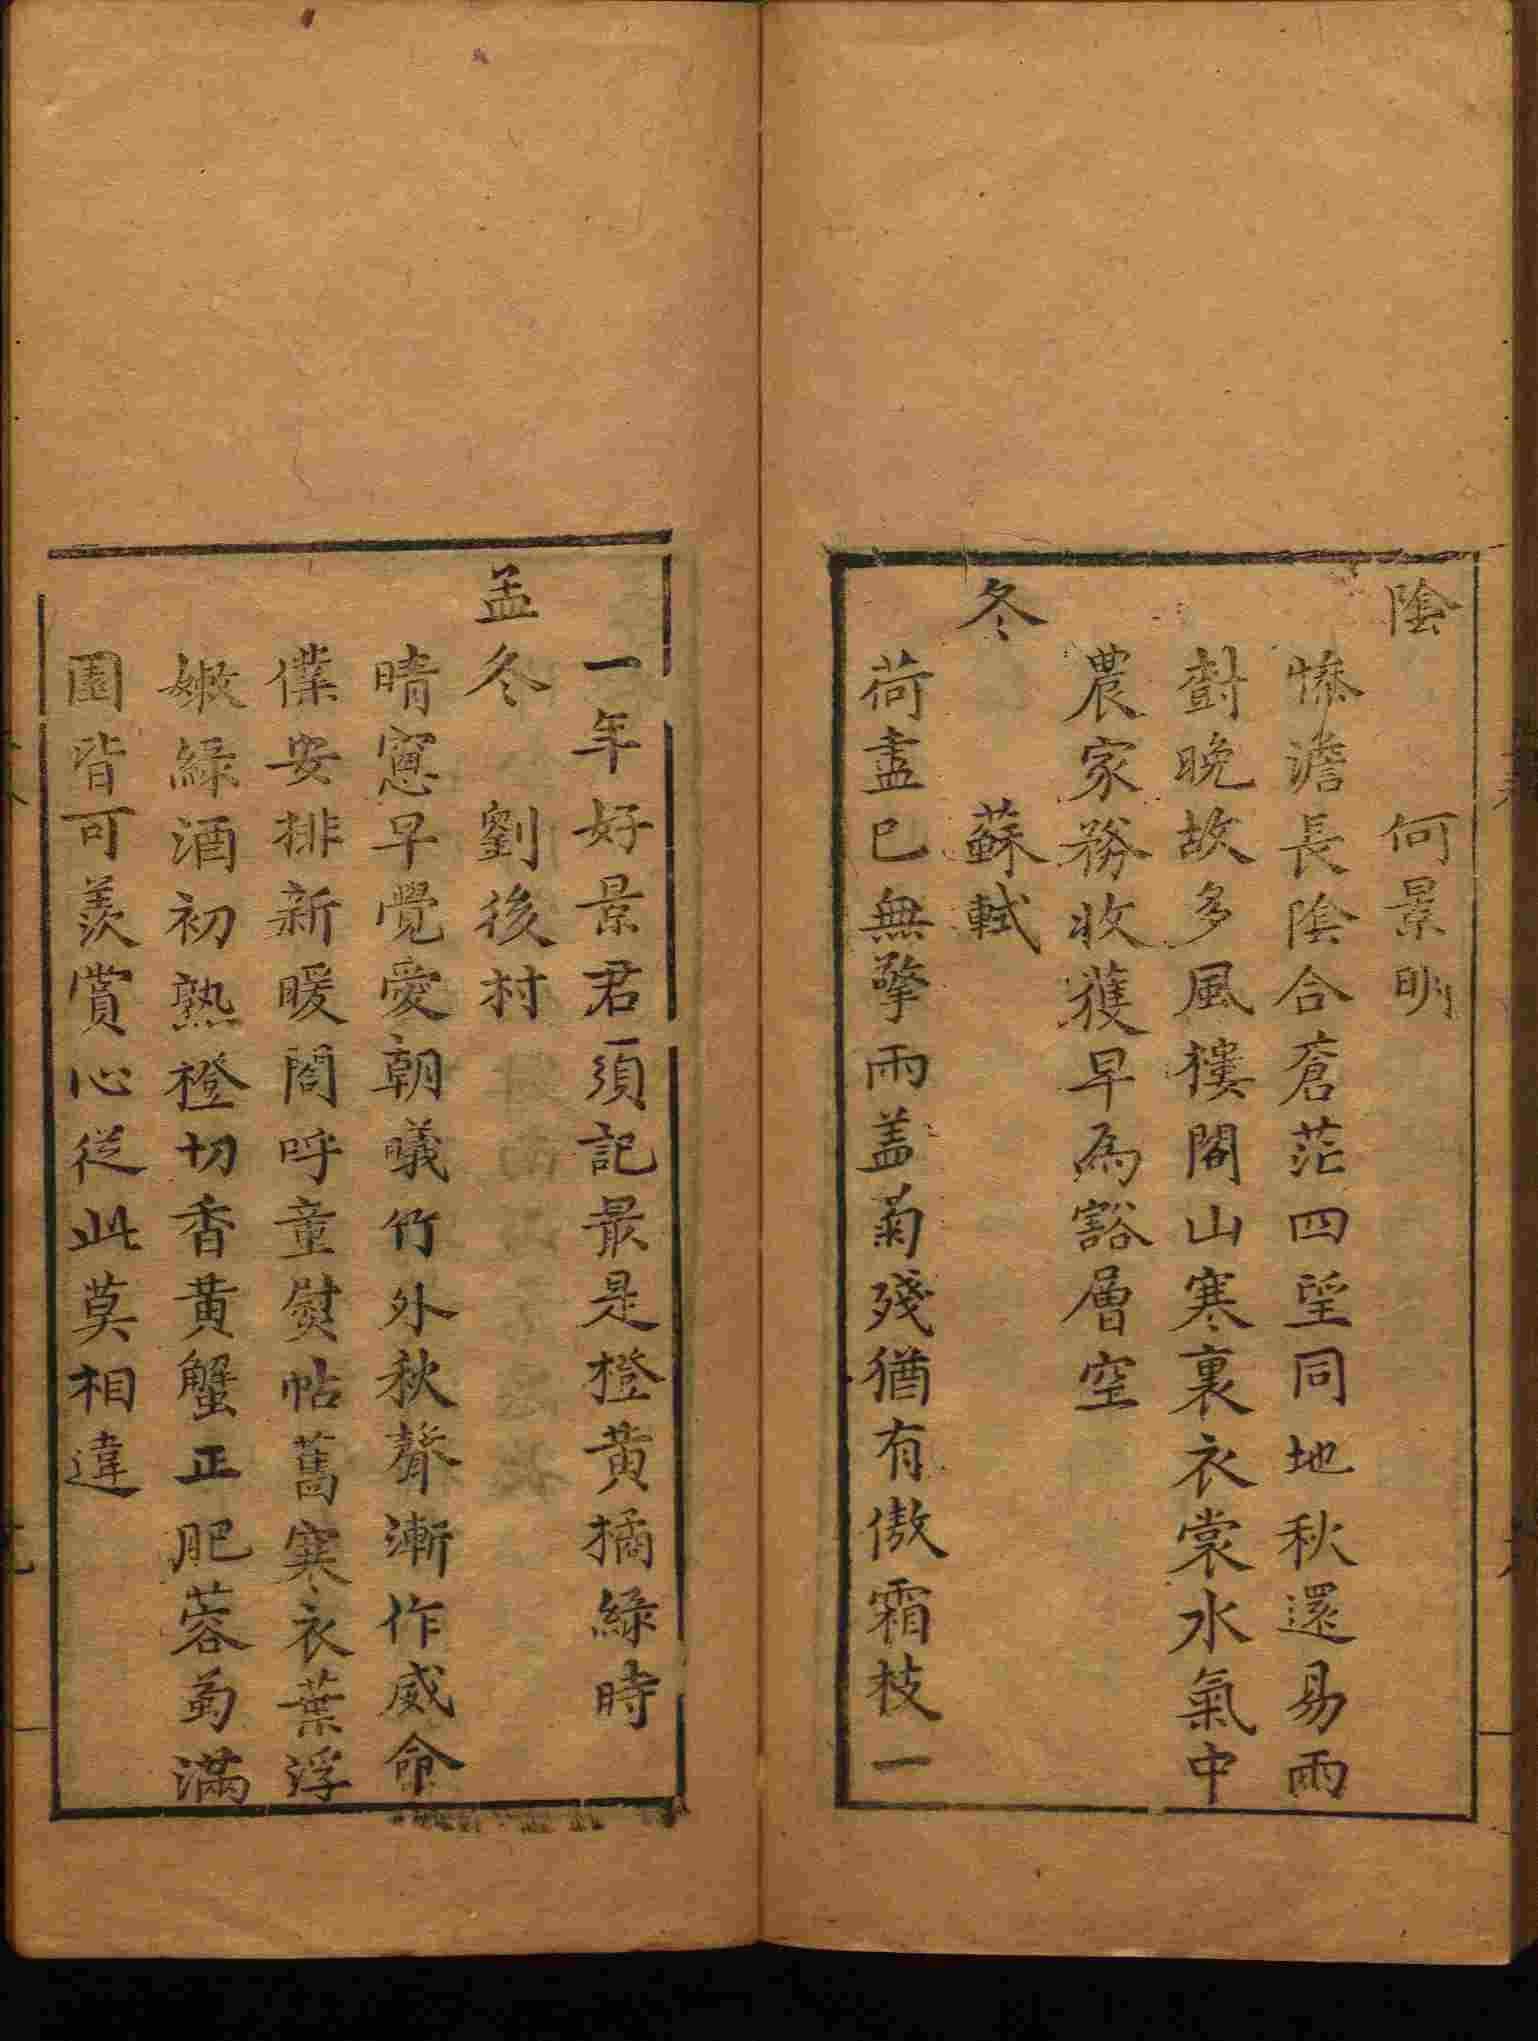 陰　何景明
慘澹長陰合蒼茫四望同地秋還易雨
對晚故多風樓閣山寒裏衣裳水氣中
農家務收獲早為豁層空
冬　蘇軾
荷盡已無擎雨盖菊殘猶有傲霜枝一
一年好景君須記最是橙黃橘綠時
孟冬　劉後村
晴窻早覺愛朝曦竹外秋聲漸作威命
僕安排新暖閣呼童熨帖舊寒衣葉浮
嫩綠酒初熟橙切香黃蟹正肥蓉菊滿
園皆可羨賞心從此莫相違